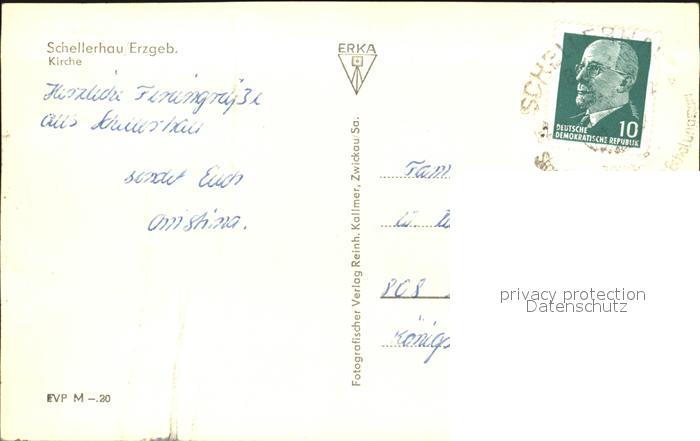 Schellerhau Erzgeb.
Kirche
Herzliche Feriengrüße
aus Schellerhau
sendet Euch
Christina.
EVP M –.20
ERKA
Fotografischer Verlag Reinh. Kallmer, Zwickau/Sa.
DEUTSCHE
DEMOKRATISCHE REPUBLIK
10
Fam
808
Königs
privacy protection
Datenschutz